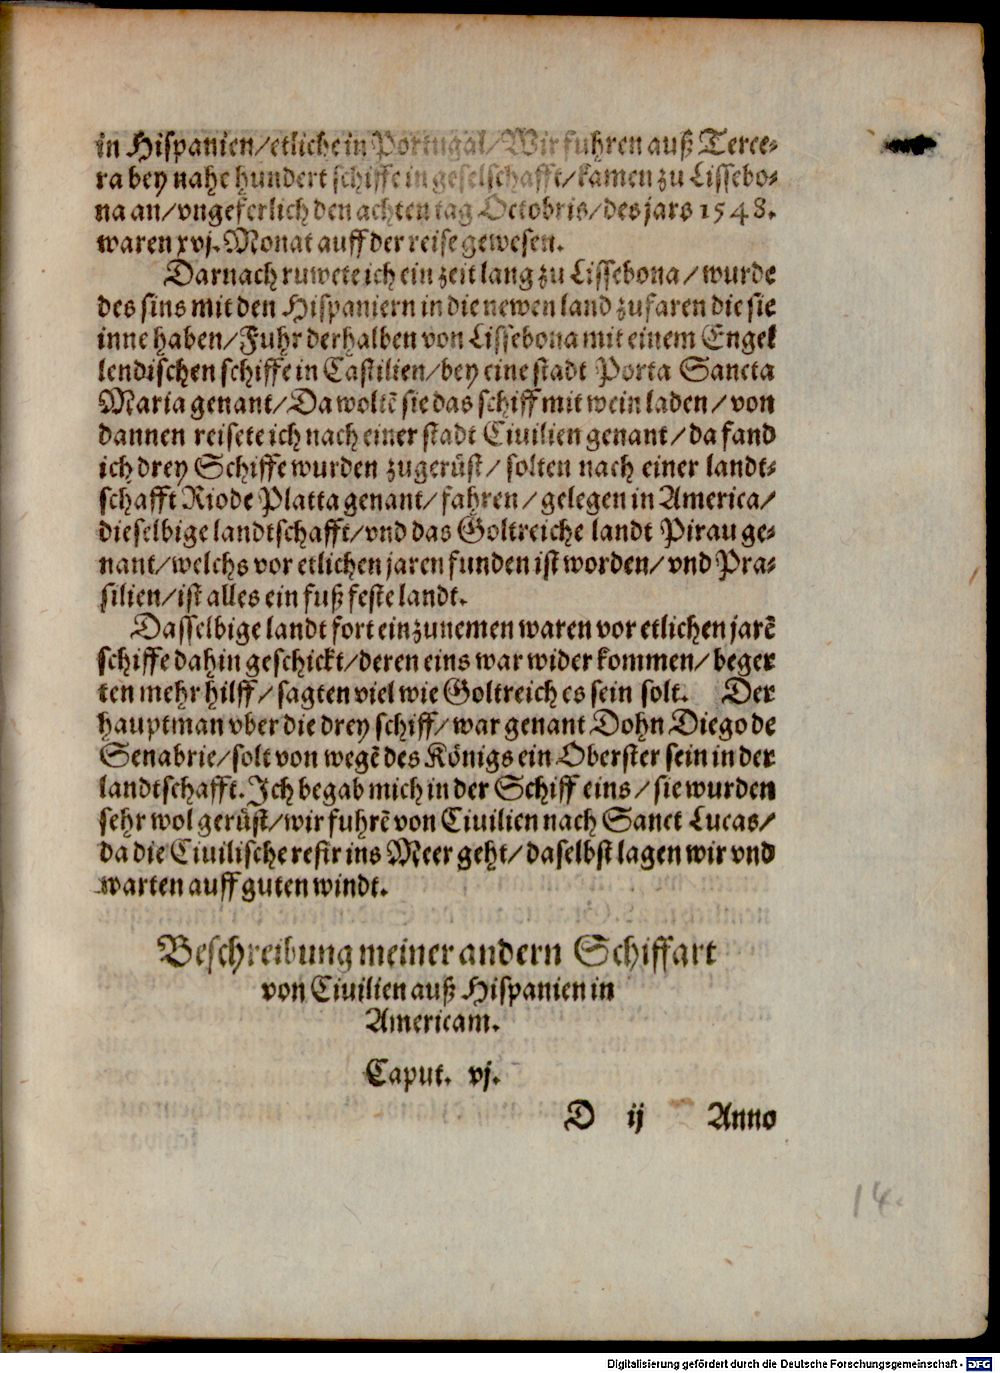 in Hispanien/etliche in Portugal/Wir fuhren auß Terce⸗
ra bey nahe hundert schiffe in geselschafft/kamen zu Lissebo⸗
na an/vngeferlich den achten tag Octobris/des jars 1548.
waren xvj. Monat auff der reise gewesen.
Darnach ruwete ich ein zeit lang zu Lissebona/wurde
des sins mit den Hispaniern in die newen land zufaren die sie
inne haben/Fuhr derhalben von Lissebona mit einem Engel
lendischen schiffe in Castilien/bey eine stadt Porta Sancta
Maria genant/Da woltē sie das schiff mit wein laden/von
dannen reisete ich nach einer stadt Ciuilien genant/da fand
ich drey Schiffe wurden zugerüst/solten nach einer landt⸗
schafft Riode Platta genant/fahren/gelegen in America/
dieselbige landtschafft/vnd das Goltreiche landt Pirau ge⸗
nant/welchs vor etlichen jaren funden ist worden/vnd Pra⸗
silien/ist alles ein fuß feste landt.
Dasselbige landt fort einzunemen waren vor etlichen jarē
schiffe dahin geschickt/deren eins war wider kommen/beger
ten mehr hilff/sagten viel wie Goltreich es sein solt. Der
hauptman vber die drey schiff/war genant Dohn Diego de
Senabrie/solt von wegē des Königs ein Oberster sein in der
landtschafft. Ich begab mich in der Schiff eins/sie wurden
sehr wol gerüst/wir fuhrē von Ciuilien nach Sanct Lucas/
da die Ciuilische refir ins Meer geht/daselbst lagen wir vnd
warten auff guten windt.
Beschreibung meiner andern Schiffart
von Ciuilien auß Hispanien in
Americam.
Caput. vj.
D ij Anno
14.
Digitalisierung gefördert durch die Deutsche Forschungsgemeinschaft - DFG